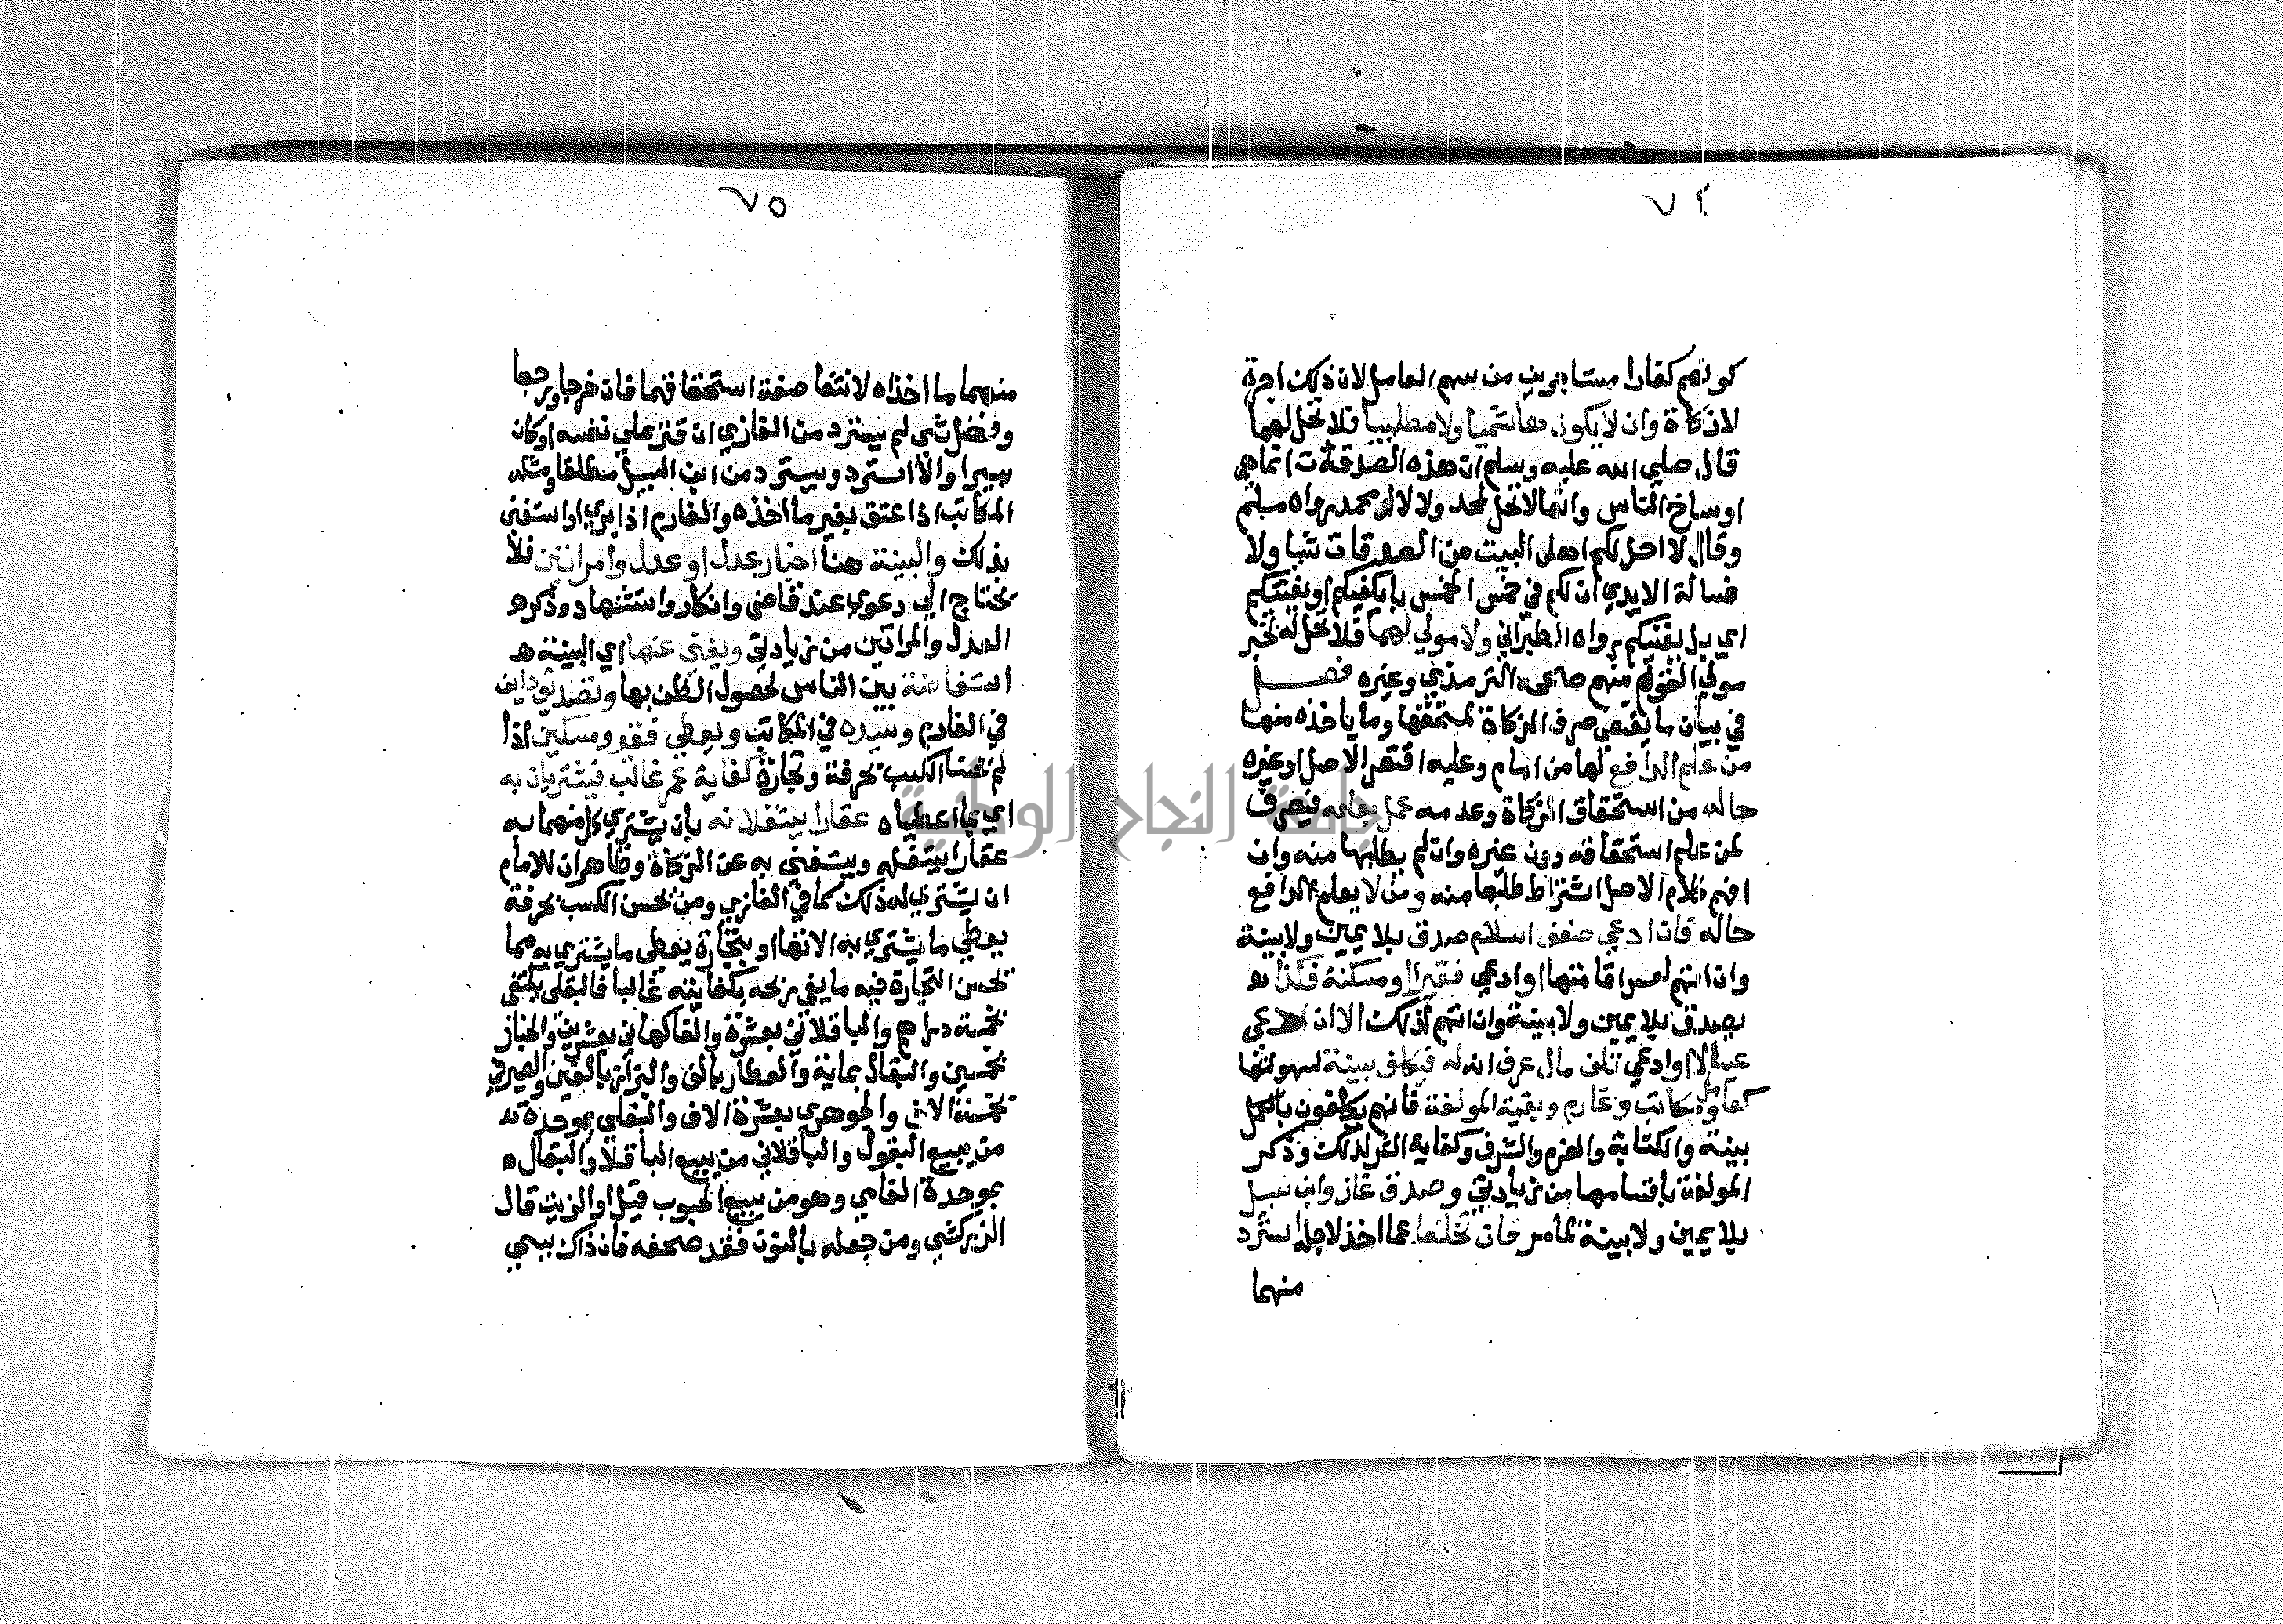 ٧٤
كونهم كفارا مستاجرين من سهم العامل لان ذلك اجرة
لا زكاة وان لا يكون هاشميا ولا مطلبيا فلا تحل لهما
قال صلي الله عليه وسلم ان هذه الصدقات انما هي
اوساخ الناس وانها لا تحل لمحمد ولا لال محمد رواه مسلم
وقال لا احل لكم اهل البيت من الصدقات شيا ولا
غسالة الايدي ان لكم في خمس الخمس ما يكفيكم او يغنيكم
اي بل يغنيكم رواه الطبراني ولا مولي لهما فلا تحل له لخبر
مولي القوم منهم صححه الترمذي وغيره فصل
في بيان ما يقتضي صرف الزكاة لمستحقها وما ياخذه منها
من علم الدافع لها من امام وعليه اقتصر الاصل او غيره
حاله من استحقاق الزكاة وعدمه عمل بعلمه فيصرف
لمن علم استحقاقه دون غيره وان لم يطلبها منه وان
افهم كلام الاصل اشتراط طلبها منه ومن لا يعلم الدافع
حاله فان ادعي ضعف اسلام صدق بلا يمين ولا بينة
وان اتهم لعسر اقامتها او ادعي فقرا او مسكنة فكذا
يصدق بلا يمين ولا بينة وان اتهم لذلك الا ان ادعي
عيالا او ادعي تلف مال عرف انه له فيكلف بينة لسهولتها
كعامل ومكاتب وغارم وبقية المولفة فانهم يكلفون بالعمل
بينة والكتابة والغرم والشرف وكفاية الشر لذلك وذكر
المولفة باقسامها من زيادتي وصدق غاز وابن سبيل
بلا يمين ولا بينة لما مر فان تخلفا عما اخذ لاجله استرد
منهما
٧٥
منهما ما اخذاه لانتفا صفة استحقاقهما فان خرجا ورجعا
وفضل شي لم يسترد من الغازي ان قتر علي نفسه او كان
يسيرا والا استرد ويسترد من ابن السبيل مطلقا ومثله
المكاتب اذا عتق بغير ما اخذه والغارم اذا بري او استغني
بذلك والبينة هنا اخبار عدل او عدل وامراتين فلا
تحتاج الي دعوي عند قاضي وانكار واستشهاد وذكره
العدل والمراتين من زيادتي ويغني عنها اي البينة
استفاضة بين الناس لحصول الظن بها وتصديق داين
في الغارم وسيده في المكاتب ويعطي فقير ومسكين اذا
لم يحسنا الكسب بحرفة وتجارة كفاية عمر غالب فيشتريان به
اي بما اعطياه عقارا يستغلانه بان يشتري كل منهما به
عقارا يستغله ويستغني به عن الزكاة وظاهر ان للامام
ان يشتري له ذلك كما في الغازي ومن يحسن الكسب بحرفة
يعطي ما يشتري به الاتها او بتجارة يعطي ما يشتري به مما
يحسن التجارة فيه ما يفي ربحه بكفايته غالبا فالبقلي يكتفي
بخمسة دراهم والباقلاني بعشرة والفاكهاني بعشرين والخباز
بخمسين والبقال بماية والعطار بالف والبزاز بالفين والصيرفي
بخمسة الاف والجوهري بعشرة الاف والبقلي بموحدة
من يبيع البقول والباقلاني من يبيع الباقلا والبقال
بموحدة الفامي وهو من يبيع الحبوب قيل او الزيت قال
الزركشي ومن جعله بالنون فقد صحفه فان ذاك يسمي
جامعة النجاح الوطنية